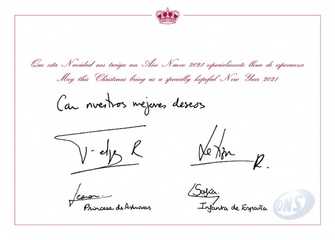 Que esta Navidad nos traiga un Año Nuevo 2021 especialmente lleno de esperanza
May this Christmas bring us a specially hopeful New Year 2021
Con nuestros mejores deseos
Felipe R
Letizia R.
Leonor
Sofía
Princesa de Asturias
Infanta de España